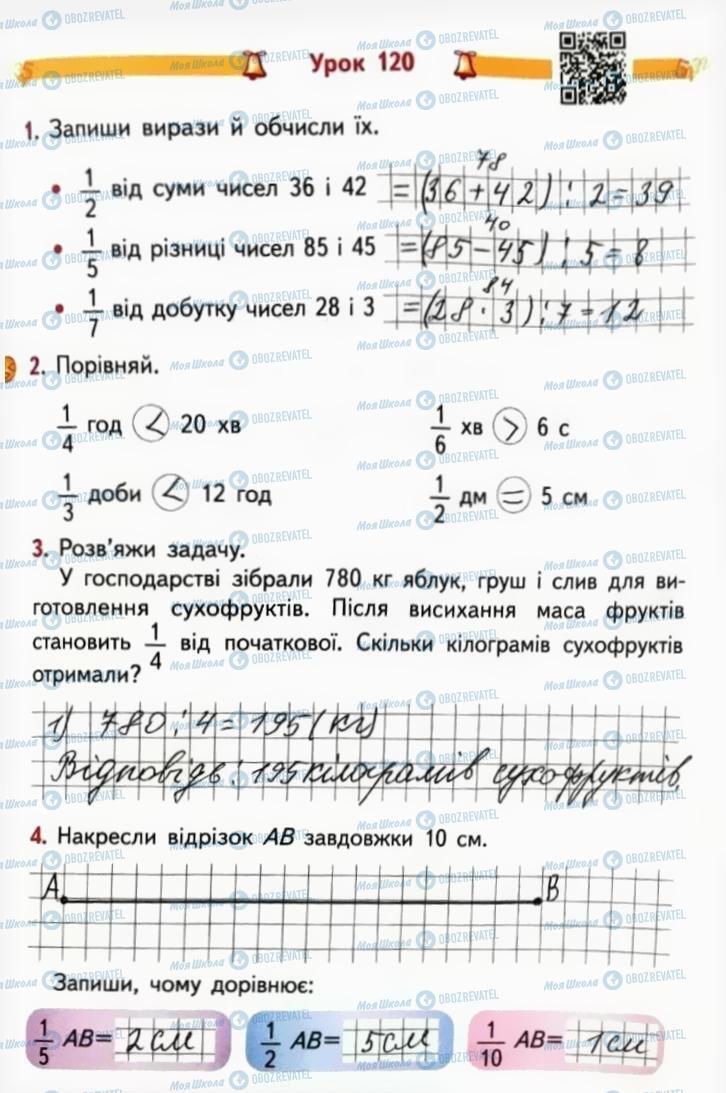 Урок 120
1. Запиши вирази й обчисли їх.
78
• 1/2 від суми чисел 36 і 42 =(36+42):2=39
40
• 1/5 від різниці чисел 85 і 45 =(85-45):5=8
84
• 1/7 від добутку чисел 28 і 3 =(28·3):7=12
2. Порівняй.
1/4 год < 20 хв 1/6 хв > 6 с
1/3 доби < 12 год 1/2 дм = 5 см
3. Розв'яжи задачу.
У господарстві зібрали 780 кг яблук, груш і слив для ви-
готовлення сухофруктів. Після висихання маса фруктів
становить 1/4 від початкової. Скільки кілограмів сухофруктів
отримали?
1) 780:4=195(кг)
Відповідь: 195 кілограмів сухофруктів.
4. Накресли відрізок AB завдовжки 10 см.
A B
Запиши, чому дорівнює:
1/5 AB= 2 см 1/2 AB= 5 см 1/10 AB= 1 см